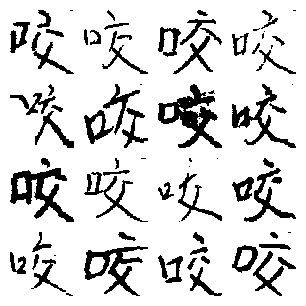 咬咬咬咬
咬咬咬咬
咬咬咬咬
咬咬咬咬